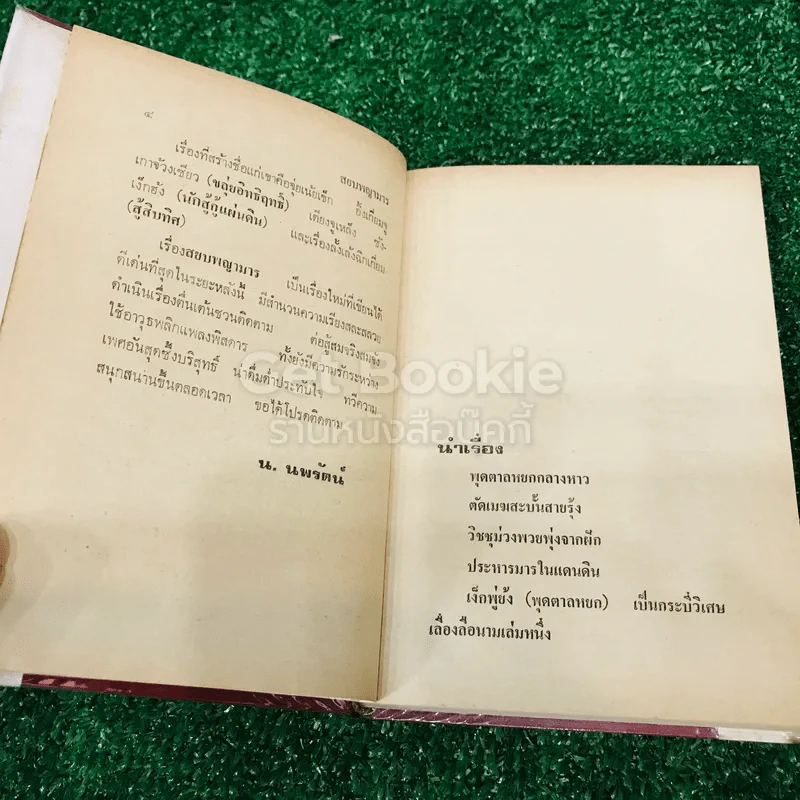 ๔
สยบพญามาร
เรื่องที่สร้างชื่อแก่เขาคือจุ่ยเนี้ยเช็ก ยิ้งเกี่ยมจู
เกาจ้วงเซียว (ขลุ่ยอิทธิฤทธิ์) เตียงจูเหล็ง ซัง-
เง็กฮ้ง (นักสู้กู้แผ่นดิน) และเรื่องลั้งเล้งฉิกเกี่ยม
(สู้สิบทิศ)
เรื่องสยบพญามาร เป็นเรื่องใหม่ที่เขียนได้
ดีเด่นที่สุดในระยะหลังนี้ มีสำนวนความเรียงสละสลวย
ดำเนินเรื่องตื่นเต้นชวนติดตาม ต่อสู้สมจริงสมจัง
ใช้อาวุธพลิกแพลงพิสดาร ทั้งยังมีความรักระหว่าง
เพศอันสุดซึ้งบริสุทธิ์ น่าดื่มด่ำประทับใจ ทวีความ
สนุกสนานขึ้นตลอดเวลา ขอได้โปรดติดตาม
น. นพรัตน์
Get Bookie
ร้านหนังสือบุ๊คกี้
นำเรื่อง
พุดตาลหยกกลางหาว
ตัดเมฆสะบั้นสายรุ้ง
วิชชุม่วงพวยพุ่งจากฝัก
ประหารมารในแดนดิน
เง็กพู่ย้ง (พุดตาลหยก) เป็นกระบี่วิเศษ
เลื่องลือนามเล่มหนึ่ง